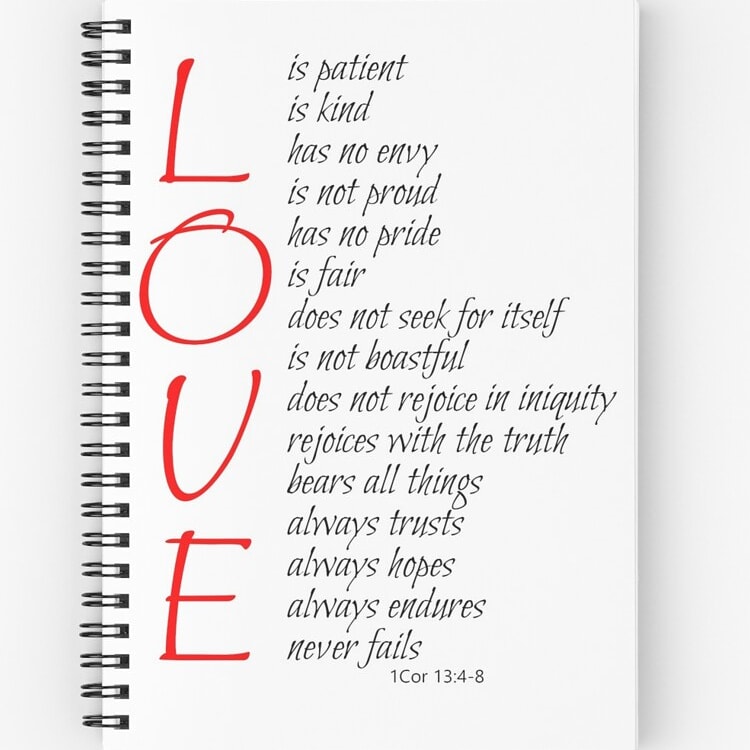 LOVE
is patient
is kind
has no envy
is not proud
has no pride
is fair
does not seek for itself
is not boastful
does not rejoice in iniquity
rejoices with the truth
bears all things
always trusts
always hopes
always endures
never fails
1Cor 13:4-8